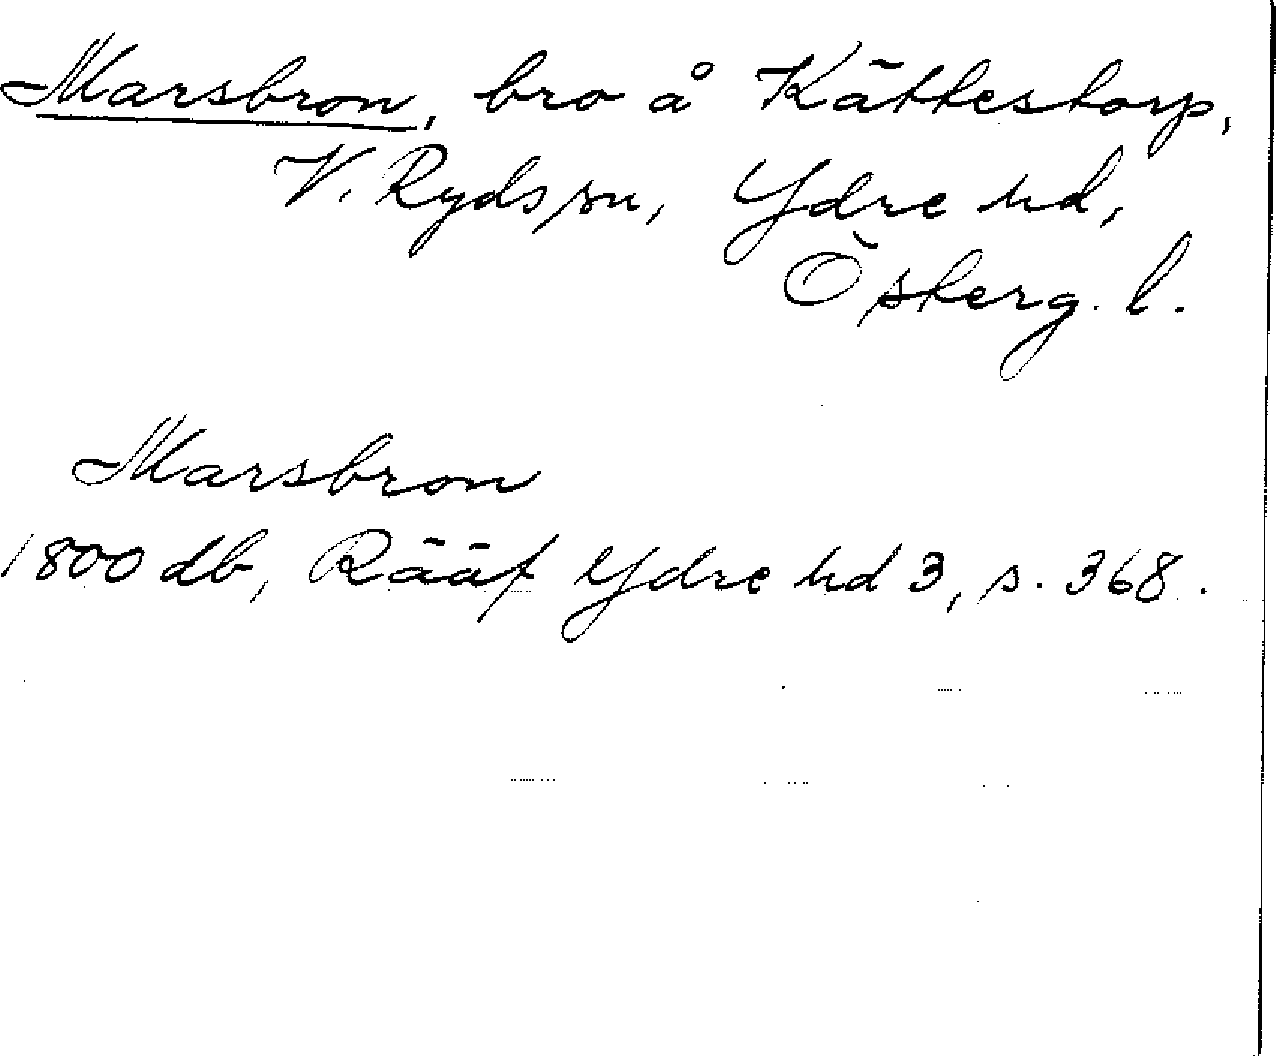 Marsbron, bro å Kättestorp,
V. Ryds sn, Ydre hd,
Österg. l.
Marsbron
1800 db, Rääf Ydre hd 3, s. 368.